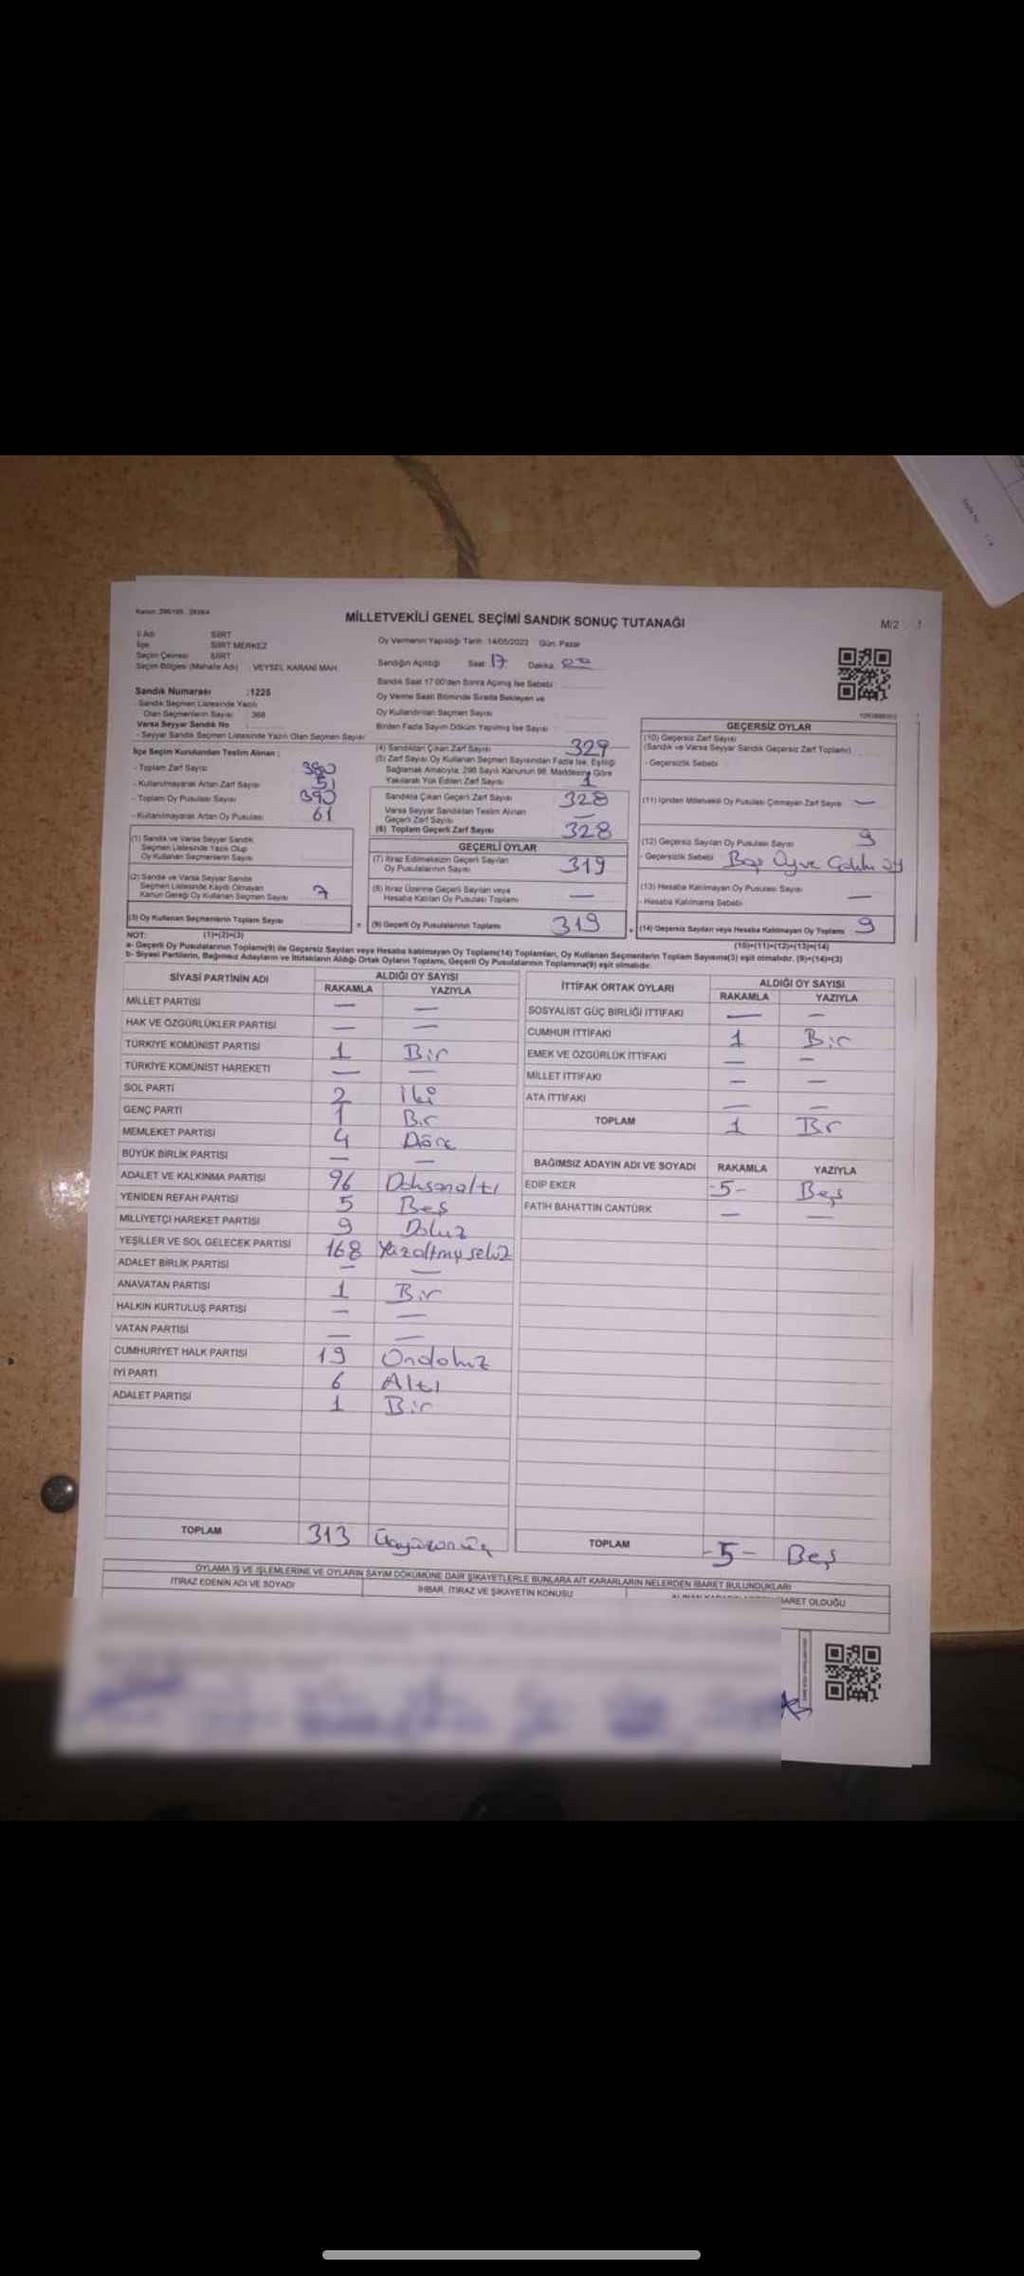 MİLLETVEKİLİ GENEL SEÇİMİ SANDIK SONUÇ TUTANAĞI
M/2
İl Adı SİİRT
İlçe SİİRT MERKEZ
Seçim Çevresi SİİRT
Seçim Bölgesi (Mahalle Adı) VEYSEL KARANİ MAH.
Oy Vermenin Yapıldığı Tarih: 14/05/2023 Gün: Pazar
Sandığın Açıldığı Saat: 17 Dakika: 00
Sandık Saat 17:00'den Sonra Açılmış İse Sebebi
Oy Verme Saati Bitiminde Sırada Bekleyen ve
Oy Kullandırılan Seçmen Sayısı
Birden Fazla Sayım Döküm Yapılmış İse Sayısı
Sandık Numarası :1225
- Sandık Seçmen Listesinde Yazılı
Olan Seçmenlerin Sayısı : 368
Varsa Seyyar Sandık No
- Seyyar Sandık Seçmen Listesinde Yazılı Olan Seçmen Sayısı
İlçe Seçim Kurulundan Teslim Alınan :
- Toplam Zarf Sayısı 380
- Kullanılmayarak Artan Zarf Sayısı 51
- Toplam Oy Pusulası Sayısı 390
- Kullanılmayarak Artan Oy Pusulası 61
(1) Sandık ve Varsa Seyyar Sandık
Seçmen Listesinde Yazılı Olup
Oy Kullanan Seçmenlerin Sayısı
(2) Sandık ve Varsa Seyyar Sandık
Seçmen Listesinde Kaydı Olmayan
Kanun Gereği Oy Kullanan Seçmen Sayısı 7
(3) Oy Kullanan Seçmenlerin Toplam Sayısı
(4) Sandıktan Çıkan Zarf Sayısı 329
(5) Zarf Sayısı Oy Kullanan Seçmen Sayısından Fazla İse, Eşitliği
Sağlamak Amacıyla, 298 Sayılı Kanunun 98. Maddesine Göre
Yakılarak Yok Edilen Zarf Sayısı 1
Sandıkta Çıkan Geçerli Zarf Sayısı 328
Varsa Seyyar Sandıktan Teslim Alınan
Geçerli Zarf Sayısı —
(6) Toplam Geçerli Zarf Sayısı 328
GEÇERLİ OYLAR
(7) İtiraz Edilmeksizin Geçerli Sayılan
Oy Pusulalarının Sayısı 319
(8) İtiraz Üzerine Geçerli Sayılan veya
Hesaba Katılan Oy Pusulası Toplamı —
(9) Geçerli Oy Pusulalarının Toplamı 319
GEÇERSİZ OYLAR
(10) Geçersiz Zarf Sayısı
(Sandık ve Varsa Seyyar Sandık Geçersiz Zarf Toplamı)
- Geçersizlik Sebebi
(11) İçinden Milletvekili Oy Pusulası Çıkmayan Zarf Sayısı —
(12) Geçersiz Sayılan Oy Pusulası Sayısı 9
- Geçersizlik Sebebi Boş Oy ve
(13) Hesaba Katılmayan Oy Pusulası Sayısı —
- Hesaba Katılmama Sebebi
(14) Geçersiz Sayılan veya Hesaba Katılmayan Oy Toplamı 9
NOT: (1)+(2)=(3)
(10)+(11)+(12)+(13)=(14)
a- Geçerli Oy Pusulalarının Toplamı(9) ile Geçersiz Sayılan veya Hesaba katılmayan Oy Toplamı(14) Toplamları, Oy Kullanan Seçmenlerin Toplam Sayısına(3) eşit olmalıdır. (9)+(14)=(3)
b- Siyasi Partilerin, Bağımsız Adayların ve İttifakların Aldığı Oyların Toplamı, Geçerli Oy Pusulalarının Toplamına(9) eşit olmalıdır.
SİYASİ PARTİNİN ADI ALDIĞI OY SAYISI
RAKAMLA YAZIYLA
MİLLET PARTİSİ — —
HAK VE ÖZGÜRLÜKLER PARTİSİ — —
TÜRKİYE KOMÜNİST PARTİSİ 1 Bir
TÜRKİYE KOMÜNİST HAREKETİ — —
SOL PARTİ 2 İki
GENÇ PARTİ 1 Bir
MEMLEKET PARTİSİ 4 Dört
BÜYÜK BİRLİK PARTİSİ — —
ADALET VE KALKINMA PARTİSİ 96 Doksanaltı
YENİDEN REFAH PARTİSİ 5 Beş
MİLLİYETÇİ HAREKET PARTİSİ 9 Dokuz
YEŞİLLER VE SOL GELECEK PARTİSİ 168 Yüzaltmışsekiz
ADALET BİRLİK PARTİSİ — —
ANAVATAN PARTİSİ 1 Bir
HALKIN KURTULUŞ PARTİSİ — —
VATAN PARTİSİ — —
CUMHURİYET HALK PARTİSİ 19 Ondokuz
İYİ PARTİ 6 Altı
ADALET PARTİSİ 1 Bir
TOPLAM 313 Üçyüzonüç
İTTİFAK ORTAK OYLARI ALDIĞI OY SAYISI
RAKAMLA YAZIYLA
SOSYALİST GÜÇ BİRLİĞİ İTTİFAKI — —
CUMHUR İTTİFAKI 1 Bir
EMEK VE ÖZGÜRLÜK İTTİFAKI — —
MİLLET İTTİFAKI — —
ATA İTTİFAKI — —
TOPLAM 1 Bir
BAĞIMSIZ ADAYIN ADI VE SOYADI RAKAMLA YAZIYLA
EDİP EKER -5- Beş
FATİH BAHATTİN CANTÜRK — —
TOPLAM -5- Beş
OYLAMA İŞ VE İŞLEMLERİNE VE OYLARIN SAYIM DÖKÜMÜNE DAİR ŞİKAYETLERLE BUNLARA AİT KARARLARIN NELERDEN İBARET BULUNDUKLARI
İTİRAZ EDENİN ADI VE SOYADI İHBAR, İTİRAZ VE ŞİKAYETİN KONUSU İBARET OLDUĞU